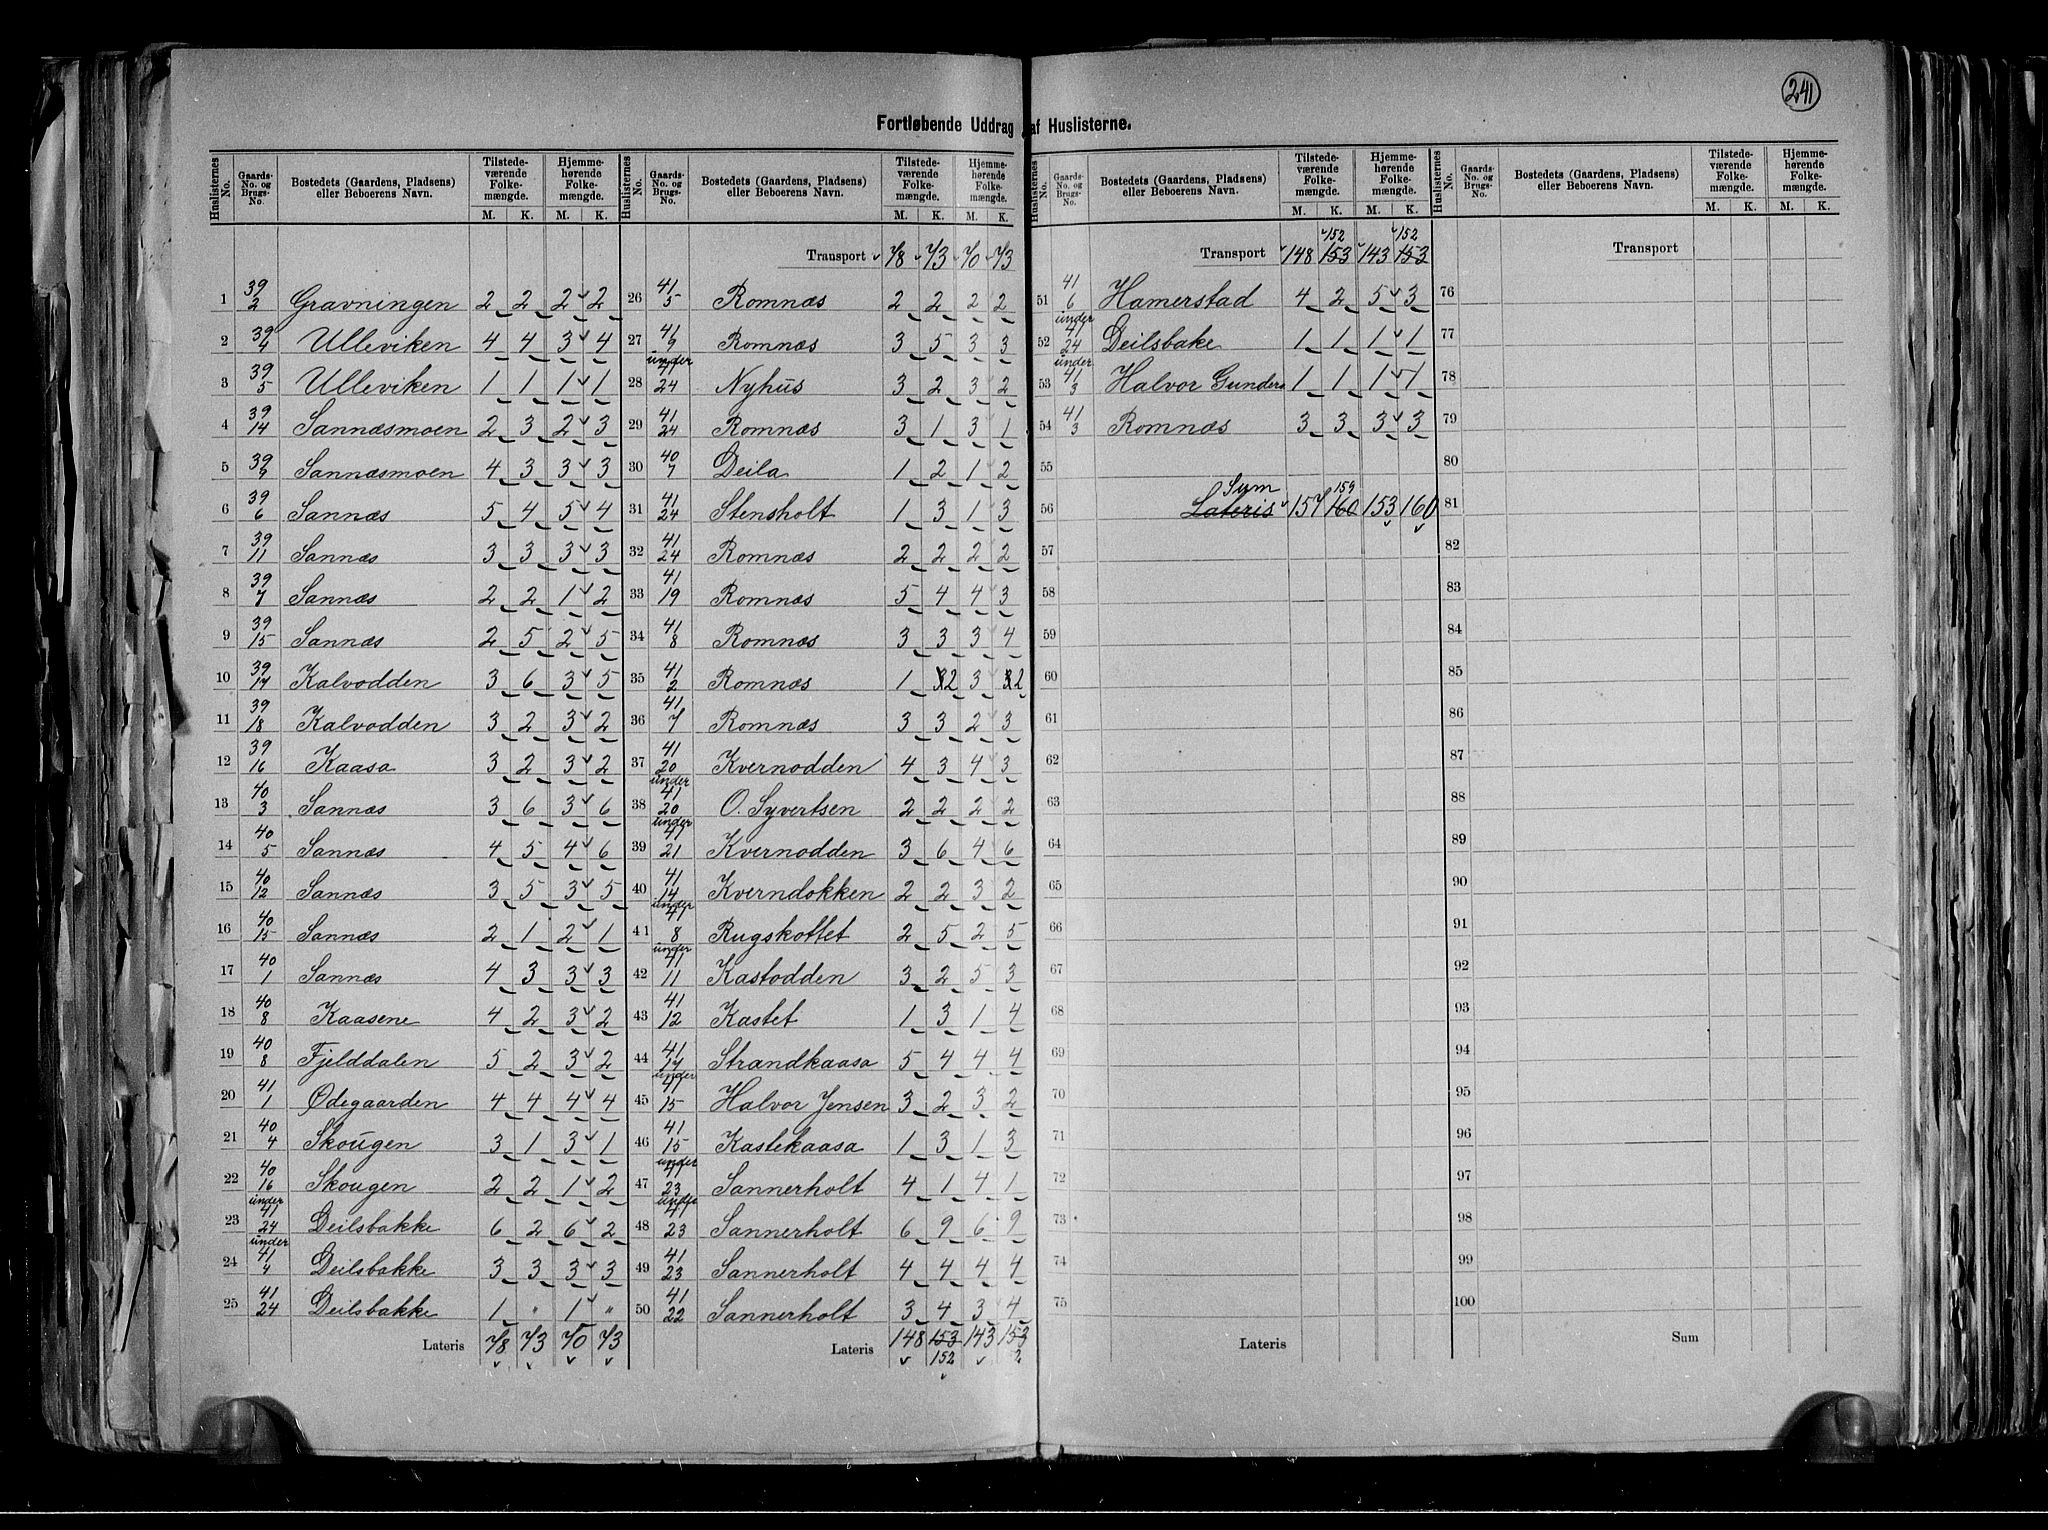 241
Fortløbende Uddrag af Huslisterne.
Huslisternes No. Gaards-No. og Brugs-No. Bostedets (Gaardens, Pladsens) eller Beboerens Navn. Tilstedeværende Folkemængde. M. K. Hjemmehørende Folkemængde. M. K.
1 39/2 Gravningen 2 2 2 2
2 39/4 Ulleviken 4 4 3 4
3 39/5 Ulleviken 1 1 1 1
4 39/14 Sannæsmoen 2 3 2 3
5 39/9 Sannæsmoen 4 3 3 3
6 39/6 Sannæs 5 4 5 4
7 39/11 Sannæs 3 3 3 3
8 39/7 Sannæs 2 2 1 2
9 39/15 Sannæs 2 5 2 5
10 39/17 Kalvodden 3 6 3 5
11 39/18 Kalvodden 3 2 3 2
12 39/16 Kaasa 3 2 3 2
13 40/3 Sannæs 3 6 3 6
14 40/5 Sannæs 4 5 4 6
15 40/12 Sannæs 3 5 3 5
16 40/15 Sannæs 2 1 2 1
17 40/1 Sannæs 4 3 3 3
18 40/8 Kaasene 4 2 3 2
19 40/8 Fjelddalen 5 2 3 2
20 41/1 Ødegaarden 4 4 4 4
21 40/4 Skougen 3 1 3 1
22 40/16 Skougen 2 2 1 2
23 under 41/24 Deilsbakke 6 2 6 2
24 under 41/4 Deilsbakke 3 3 3 3
25 41/24 Deilsbakke 1 " 1 "
Lateris 78 73 70 73
Huslisternes No. Gaards-No. og Brugs-No. Bostedets (Gaardens, Pladsens) eller Beboerens Navn. Tilstedeværende Folkemængde. M. K. Hjemmehørende Folkemængde. M. K.
Transport 78 73 70 73
26 41/5 Romnæs 2 2 2 2
27 41/9 Romnæs 3 5 3 3
28 under 41/24 Nyhus 3 2 3 2
29 41/24 Romnæs 3 1 3 1
30 40/7 Deila 1 2 1 2
31 41/24 Stensholt 1 3 1 3
32 41/24 Romnæs 2 2 2 2
33 41/19 Romnæs 5 4 4 3
34 41/8 Romnæs 3 3 3 4
35 41/2 Romnæs 1 2 3 2
36 41/7 Romnæs 3 3 2 3
37 41/20 Kvernodden 4 3 4 3
38 under 41/20 O. Syvertsen 2 2 2 2
39 under 41/21 Kvernodden 3 6 4 6
40 41/14 Kverndokken 2 2 3 2
41 under 41/8 Rugskottet 2 5 2 5
42 under 41/11 Kastodden 3 2 5 3
43 41/12 Kastet 1 3 1 4
44 41/14 Strandkaasa 5 4 4 4
45 under 41/15 Halvor Jensen 3 2 3 2
46 41/15 Kastekaasa 1 3 1 3
47 under 41/23 Sannerholt 4 1 4 1
48 under 41/23 Sannerholt 6 9 6 9
49 41/23 Sannerholt 4 4 4 4
50 41/22 Sannerholt 3 4 3 4
Lateris 148 153 143 153
152 2
Huslisternes No. Gaards-No. og Brugs-No. Bostedets (Gaardens, Pladsens) eller Beboerens Navn. Tilstedeværende Folkemængde. M. K. Hjemmehørende Folkemængde. M. K.
152 152
Transport 148 153 143 153
51 41/6 Hamerstad 4 2 5 3
52 under 41/24 Deilsbake 1 1 1 1
53 under 41/3 Halvor Gunders 1 1 1 1
54 41/3 Romnæs 3 3 3 3
55
Sum 159
56 Lateris 157 160 153 160
57
58
59
60
61
62
63
64
65
66
67
68
69
70
71
72
73
74
75
Lateris
Huslisternes No. Gaards-No. og Brugs-No. Bostedets (Gaardens, Pladsens) eller Beboerens Navn. Tilstedeværende Folkemængde. M. K. Hjemmehørende Folkemængde. M. K.
Transport
76
77
78
79
80
81
82
83
84
85
86
87
88
89
90
91
92
93
94
95
96
97
98
99
100
Sum